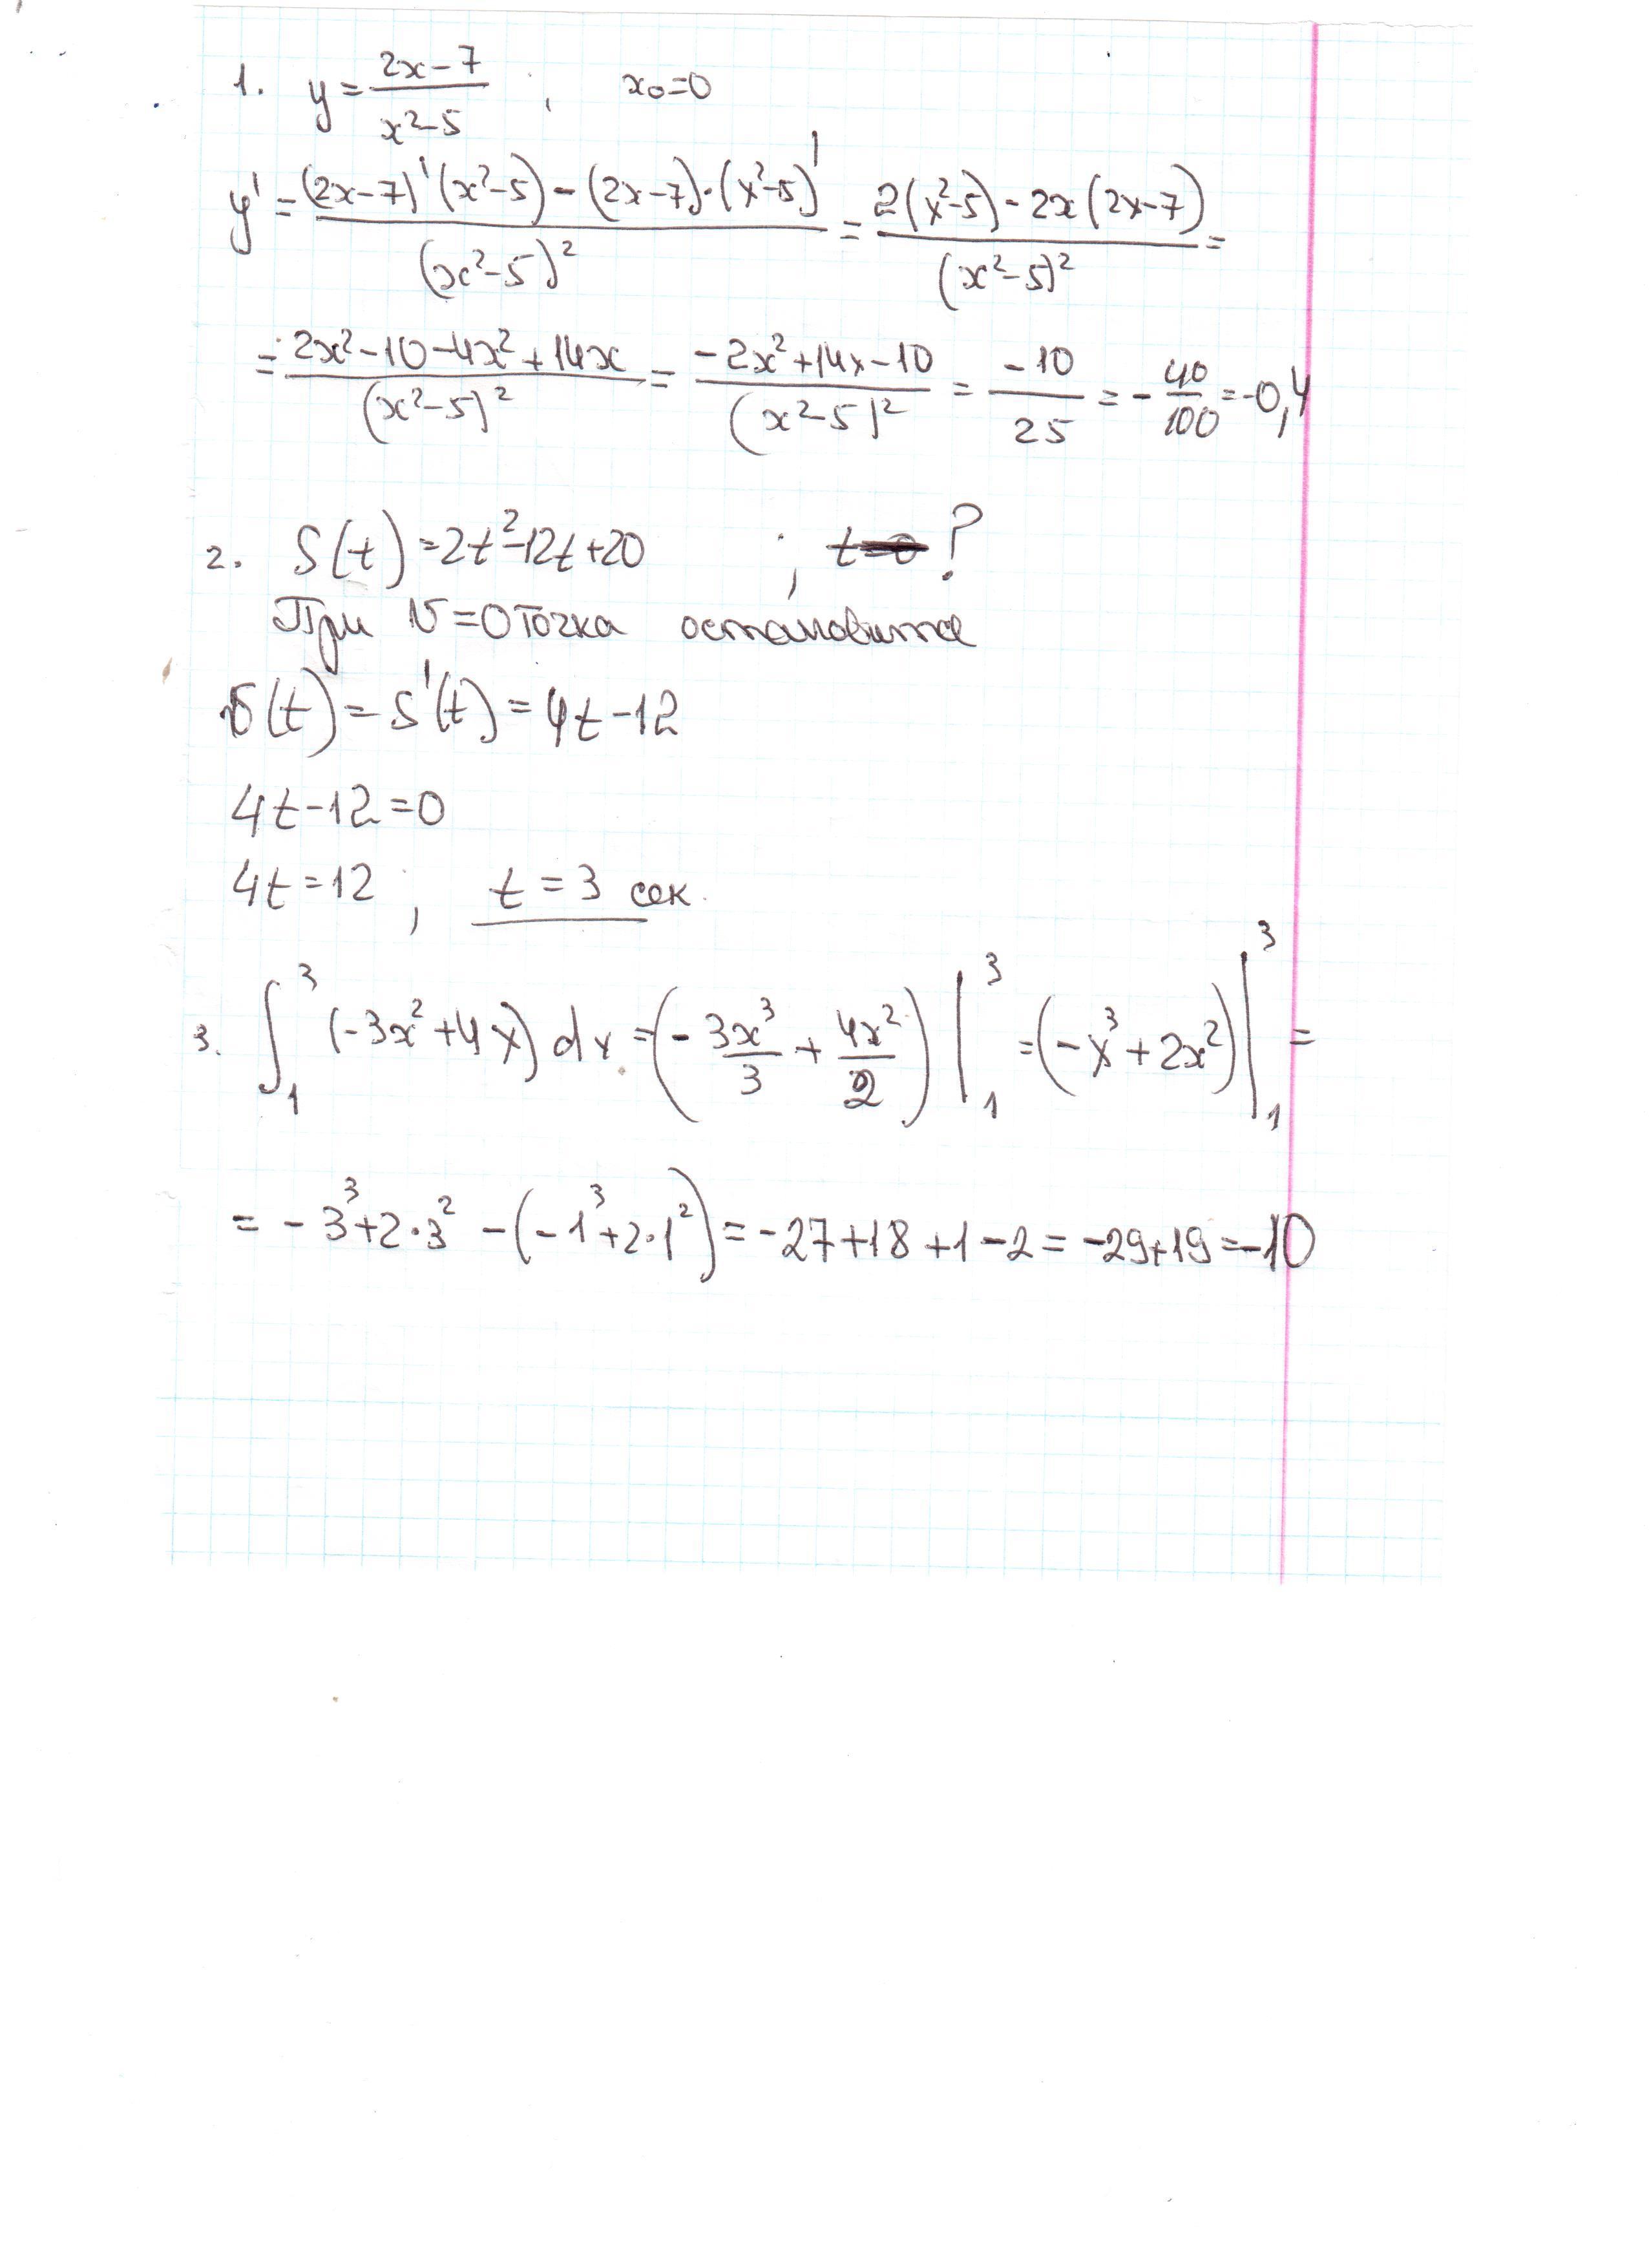 1. y = (2x-7)/(x²-5) , x₀=0
y' = ((2x-7)'(x²-5) - (2x-7)·(x²-5)')/(x²-5)² = (2(x²-5) - 2x(2x-7))/(x²-5)² =
= (2x²-10-4x²+14x)/(x²-5)² = (-2x²+14x-10)/(x²-5)² = -10/25 = -40/100 = -0,4
2. S(t) = 2t²-12t+20 ; t=0 ?
При v=0 точка остановится
v(t) = S'(t) = 4t-12
4t-12=0
4t=12 ; t = 3 сек.
3. ∫₁³ (-3x²+4x) dx = (-3x³/3 + 4x²/2) |₁³ = (-x³+2x²) |₁³ =
= -3³+2·3² - (-1³+2·1²) = -27+18+1-2 = -29+19 = -10